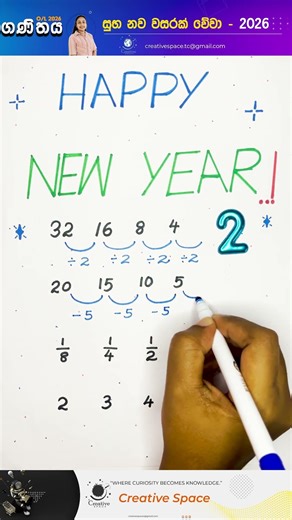 O/L 2026
ගණිතය
සුභ නව වසරක් වේවා - 2026
creativespace.tc@gmail.com
HAPPY
NEW YEAR!
32 16 8 4 2
÷2 ÷2 ÷2 ÷2
20 15 10 5
-5 -5 -5
1/8 1/4 1/2
2 3 4
"WHERE CURIOSITY BECOMES KNOWLEDGE."
Creative
Creative Space